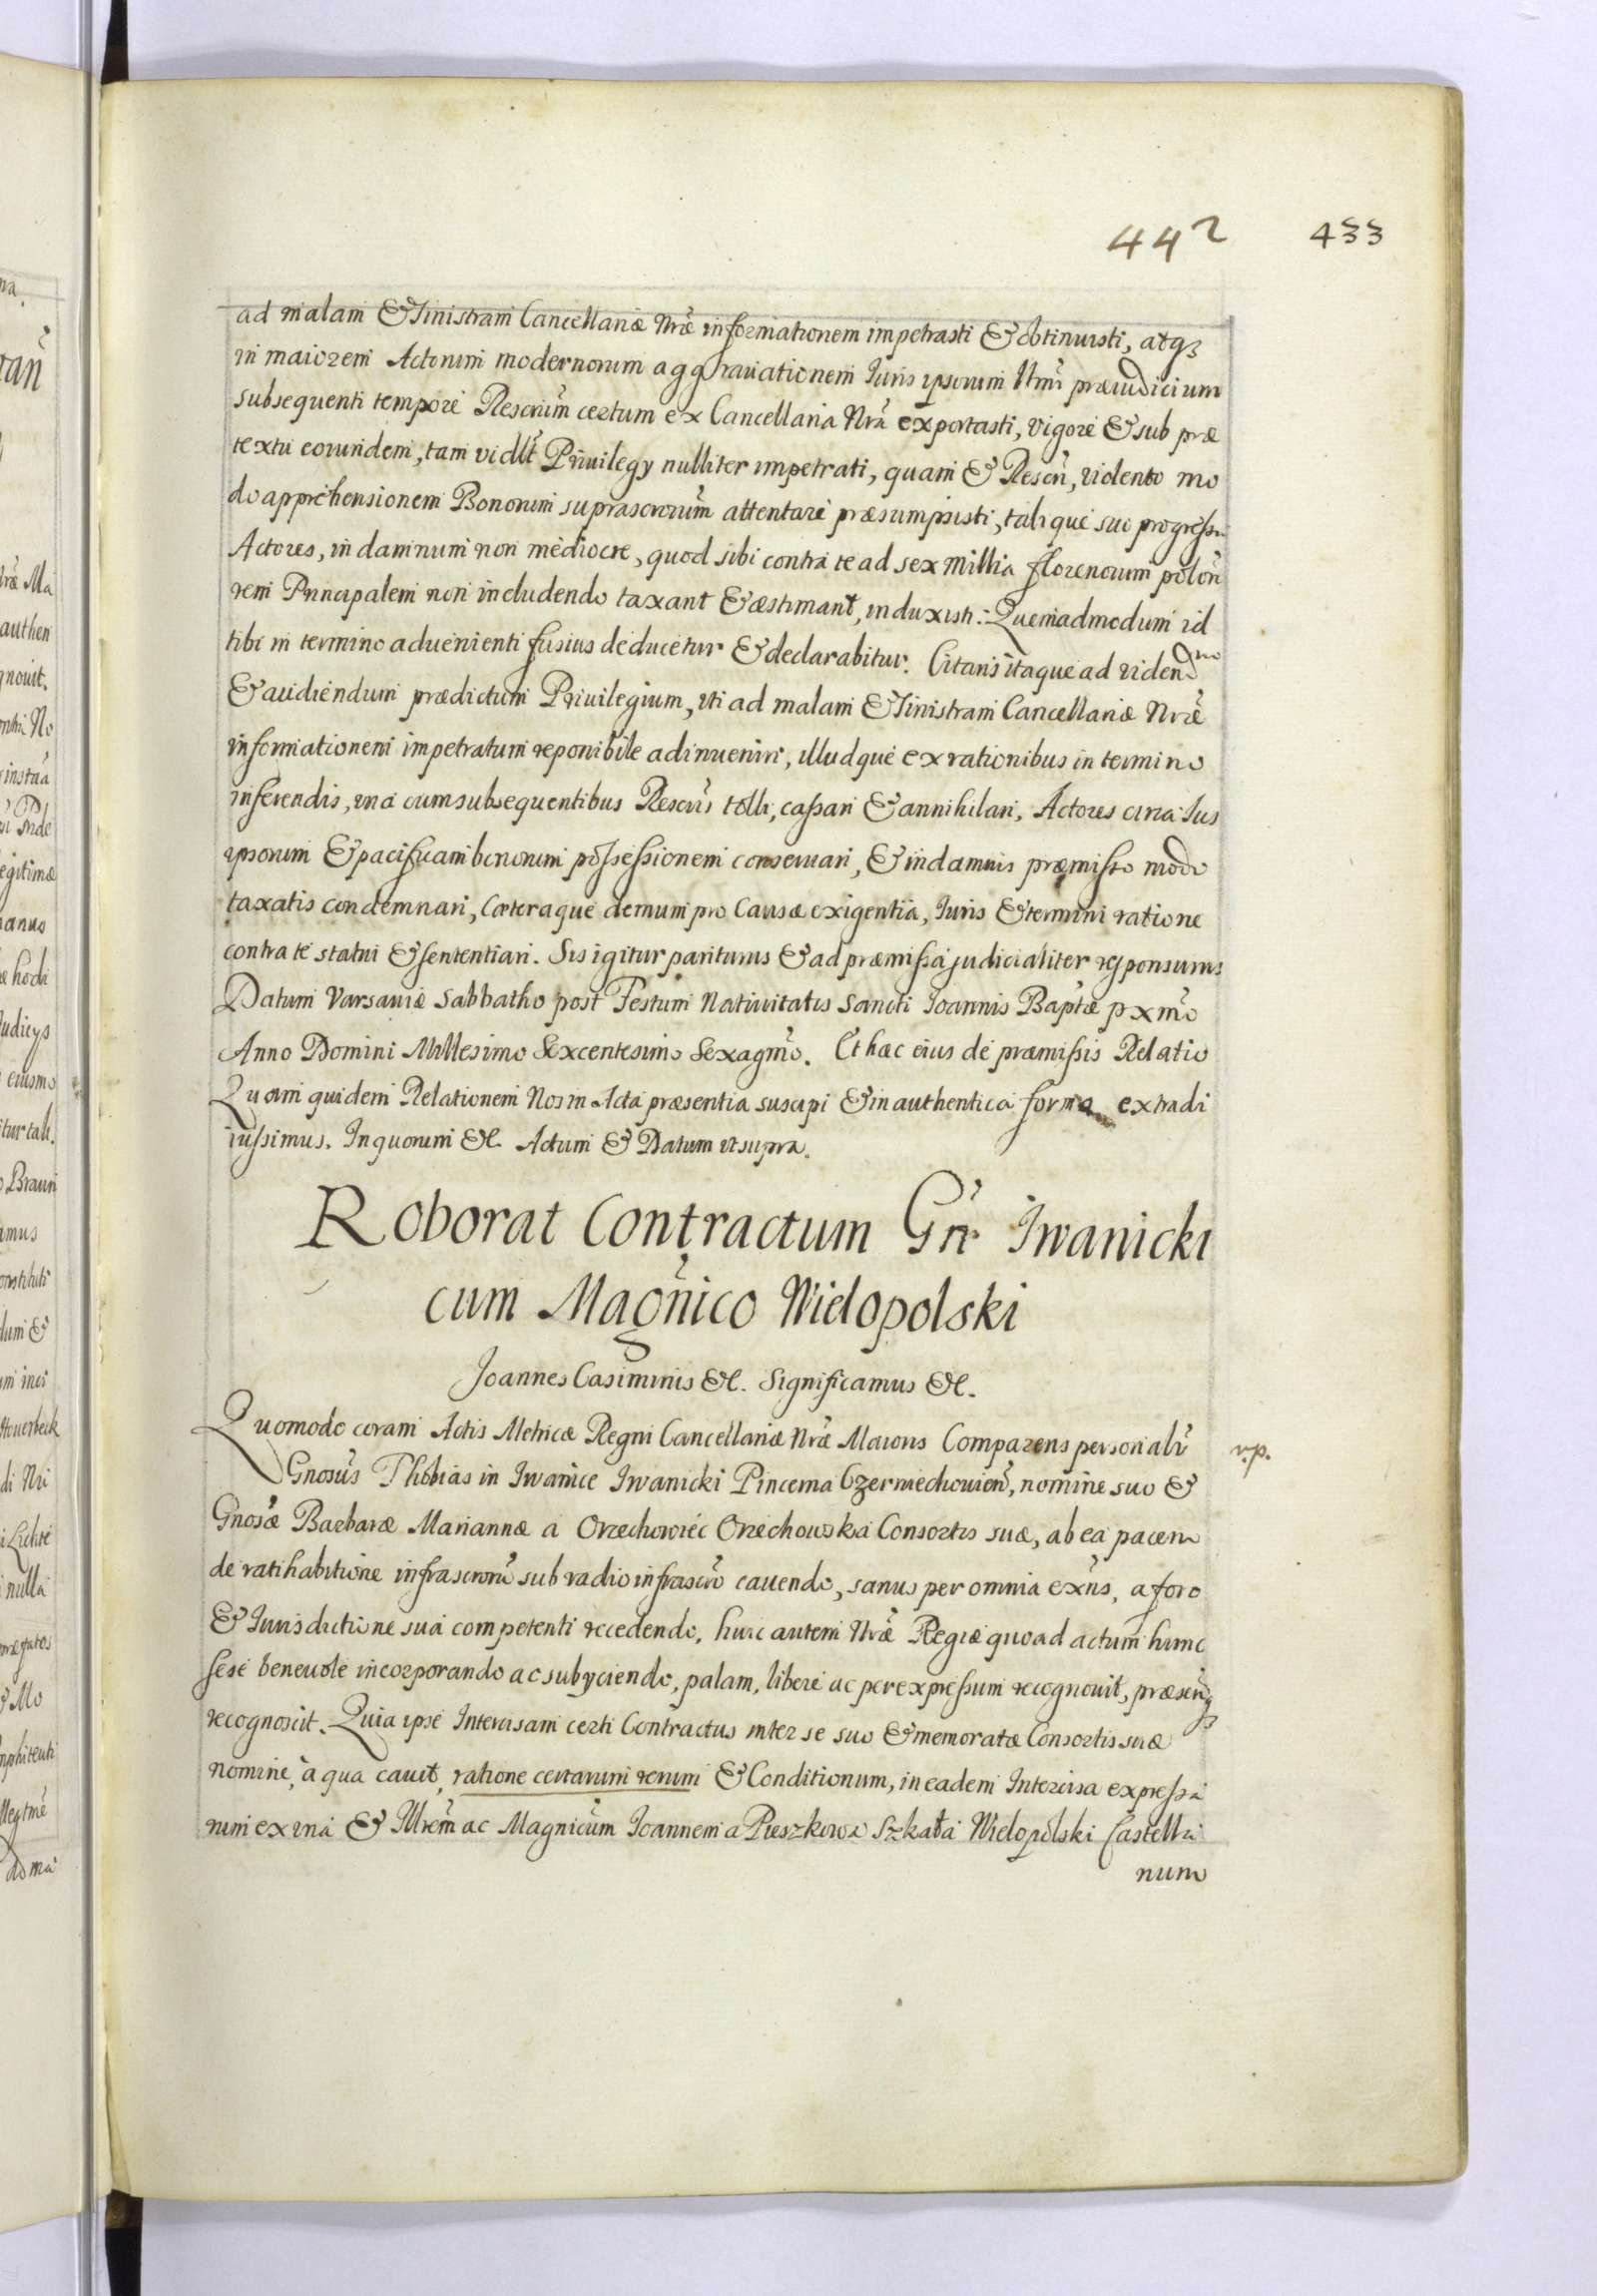 442 433
ad malam & sinistram Cancellariæ Nræ informationem impetrasti & obtinuisti, atqз
in maiorem Actorum modernorum aggrauationem Iuris ipsorum Itmi præiudicium
subsequenti tempore Rescrium certum ex Cancellaria Nra exportasti, vigore & sub præ
textu eorundem, tam vidlt Priuilegy nulliter impetrati, quam & Rescri, violento mo
do apprehensionem Bonorum suprascrorum attentare præsumpsisti, talique suo progressu
Actores, in damnum non mediocre, quod sibi contra te ad sex millia florenorum polon
rem Principalem non includendo taxant & æstimant, induxisti: Quemadmodum id
tibi in termino aduenienti fusius deducetur & declarabitur. Citaris itaque ad videndum
& audiendum prædictum Priuilegium, vti ad malam & sinistram Cancellariæ Nræ
informationem impetratum reponibile adinueniri, illudque ex rationibus in termino
inferendis, vna cum subsequentibus Rescris tolli, cassari & annihilari, Actores circa Ius
ipsorum & pacificam bonorum possessionem conseruari, & in damnis præmisso modo
taxatis condemnari, Cæteraque demum pro Causæ exigentia, Iuris & termini ratione
contra te statui & sententiari. Sis igitur pariturus & ad præmissa judicialiter responsurus
Datum Varsauiæ Sabbatho post Festum Natiuitatis Sancti Ioannis Baptæ pxmo
Anno Domini Millesimo Sexcentesimo Sexagmo. Et hæc eius de præmissis Relatio
Quam quidem Relationem Nos in Acta præsentia suscipi & in authentica forma extradi
iussimus. In quorum &c. Actum & Datum vt supra.
Roborat Contractum Gñ Iwanicki
cum Magñico Wielopolski
Joannes Casimirus &c. Significamus &c.
Quomodo coram Actis Metricæ Regni Cancellariæ Nræ Maioris Comparens personalr r.p.
Gnosus Thobias in Iwanice Iwanicki Pincerna Czerniechouien, nomine suo &
Gnosæ Barbaræ Mariannæ a Orzechowiec Orzechowska Consortis suæ, ab ea pacem
de ratihabitione infrascrorum sub vadio infrascro cauendo, sanus per omnia exñs, a foro
& Iurisdictione sua competenti recedendo, huic autem Nræ Regiæ quoad actum hunc
sese beneuole incorporando ac subyciendo, palam, libere ac per expressum recognouit, præsenqз
recognoscit. Quia ipse Intercisam certi Contractus inter se suo & memoratæ Consortis suæ
nomine, à qua cauit, ratione certarum rerum & Conditionum, in eadem Intercisa expressa
rum ex vna & Illrem ac Magnicum Ioannem a Pieszkowa Szkała Wielopolski Castella
num